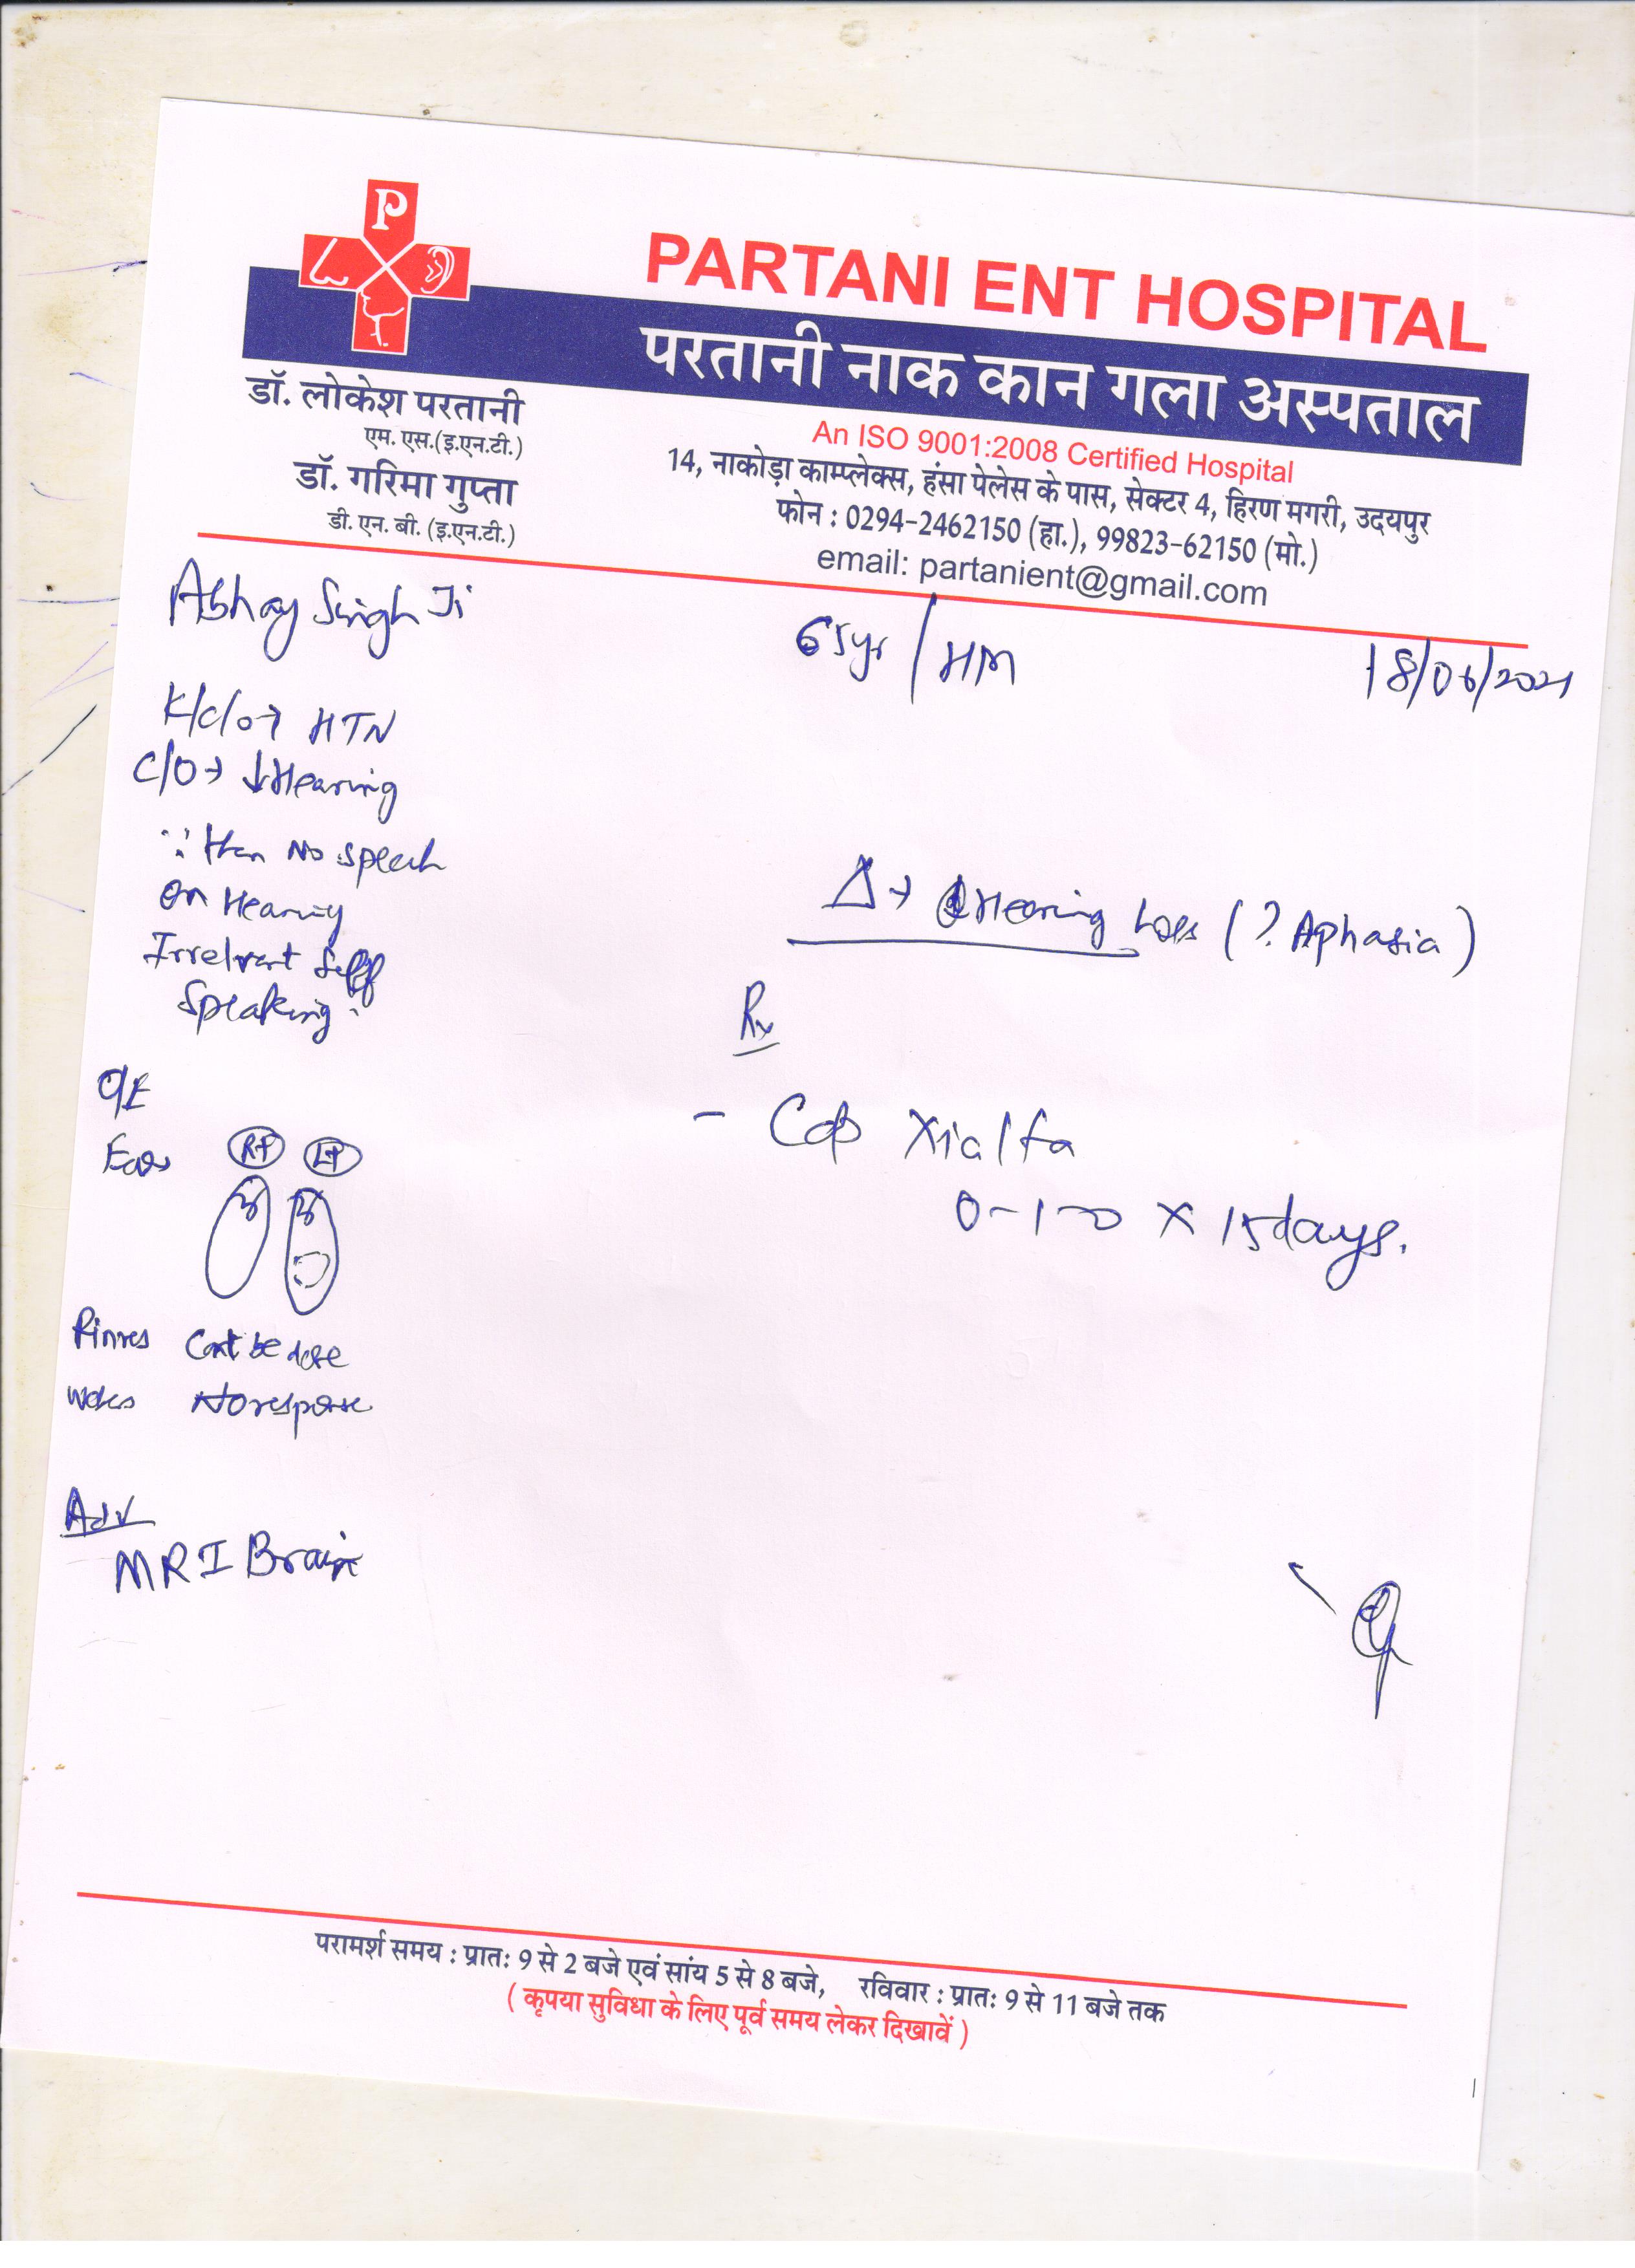 P
PARTANI ENT HOSPITAL
परतानी नाक कान गला अस्पताल
डॉ. लोकेश परतानी
एम. एस.(इ.एन.टी.)
डॉ. गरिमा गुप्ता
डी. एन. बी. (इ.एन.टी.)
An ISO 9001:2008 Certified Hospital
14, नाकोड़ा काम्प्लेक्स, हंसा पेलेस के पास, सेक्टर 4, हिरण मगरी, उदयपुर
फोन : 0294-2462150 (हा.), 99823-62150 (मो.)
email: partanient@gmail.com
Abhay Singh Ji 65yr / HM 18/06/2021
K/C/O → HTN
C/O → ↓Hearing
∵ then No speech
on Hearing
Irrelvant self
Speaking.
Δ → Hearing Loss (? Aphasia)
Rx
- Cap Xialfa
0-1-0 × 15days.
O/E
Ears Rt Lt
Rinnes Cant be done
Webers No response
Adv
MRI Brain
परामर्श समय : प्रातः 9 से 2 बजे एवं सांय 5 से 8 बजे, रविवार : प्रातः 9 से 11 बजे तक
( कृपया सुविधा के लिए पूर्व समय लेकर दिखावें )